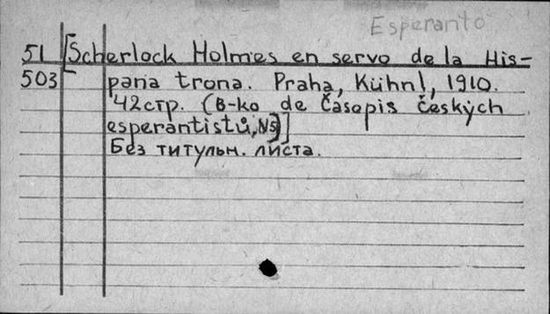 Esperanto
51 [Scherlock Holmes en servo de la His-
503 pana trona. Praha, Kühnl, 1910.
42стр. (B-ko de Časopis českých
esperantistů, N5)]
Без титульн. листа.